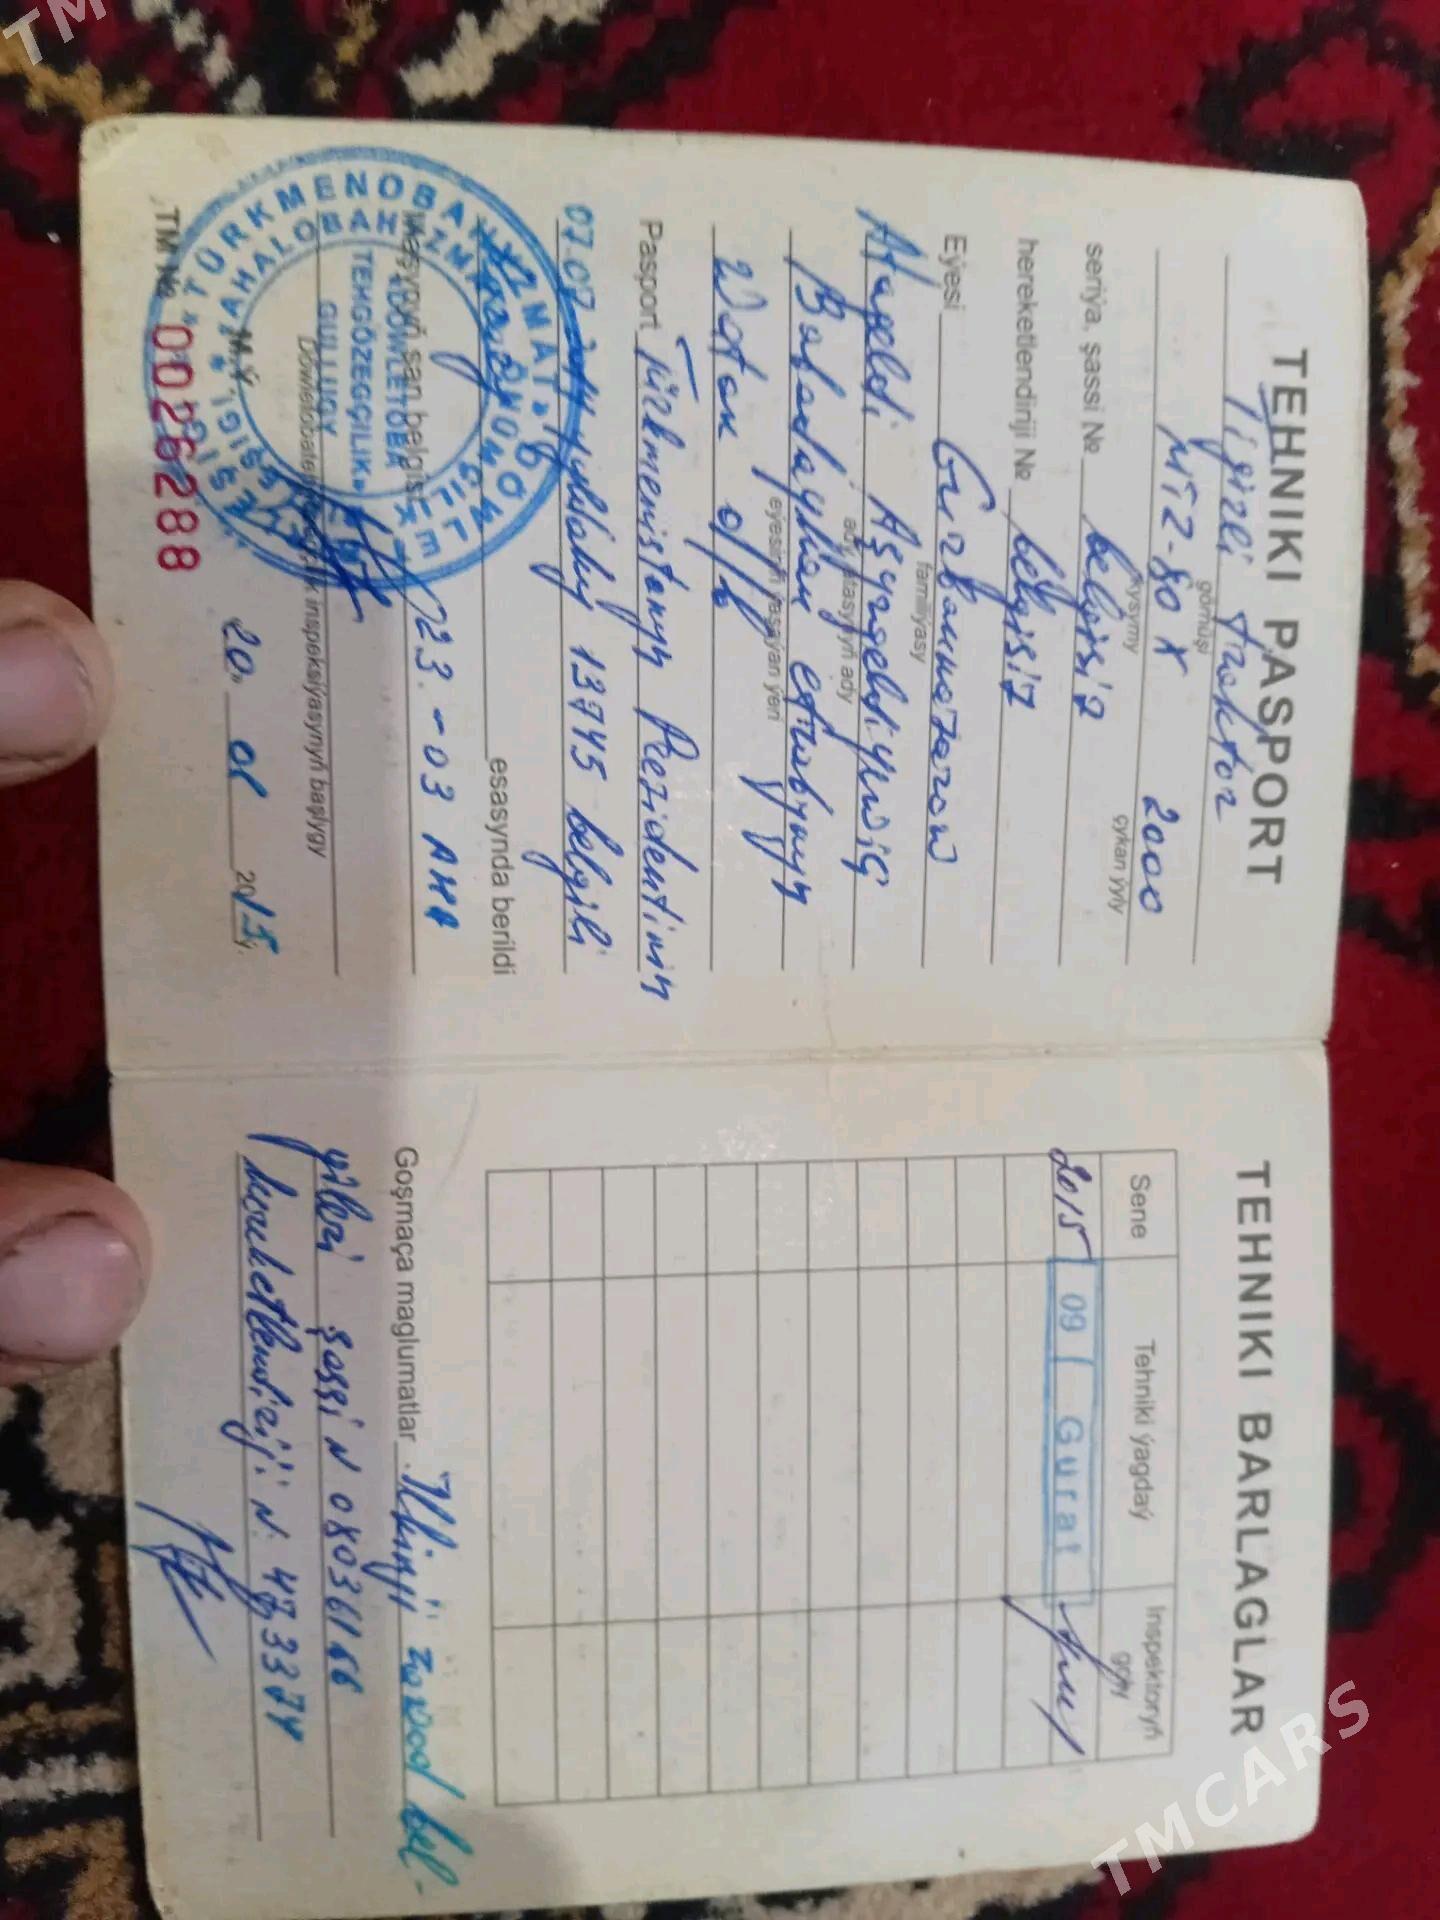 TEHNIKI PASPORT
Tigirli traktor
görnüşi
MTZ-80 X 2000
kysymy
çykan ýyly
seriýa, şassi № belgisiz
hereketlendiriji № belgisiz
Eýesi Gurbannazarow
familiýasy
Atageldi Aşyrgeldiýewiç
ady, atasynyň ady
Babadaýhan etrabynyň
eýesiniň ýaşaýan ýeri
Watan o/b
Pasport Türkmenistanyň Prezidentiniň
07.07. ýyldaky 13745 belgili
esasynda berildi
Maşynyň san belgisi 23.-03 AHB
Döwletobatehgözegçilik inspeksiýasynyň başlygy
M.Ý.
20. 01 2015 ý.
TM № 0026288
TÜRKMENOBAHYZMAT
DÖWLETOBA
TEHGÖZEGÇILIK
GULLUGY
TEHNIKI BARLAGLAR
Sene
Tehniki ýagdaý
Inspektoryň goly
2015 09 Gurat
Goşmaça maglumatlar Ilkinji zawod bel-
gileri şassi N 0803616
hereketlendiriji N
TMCARS